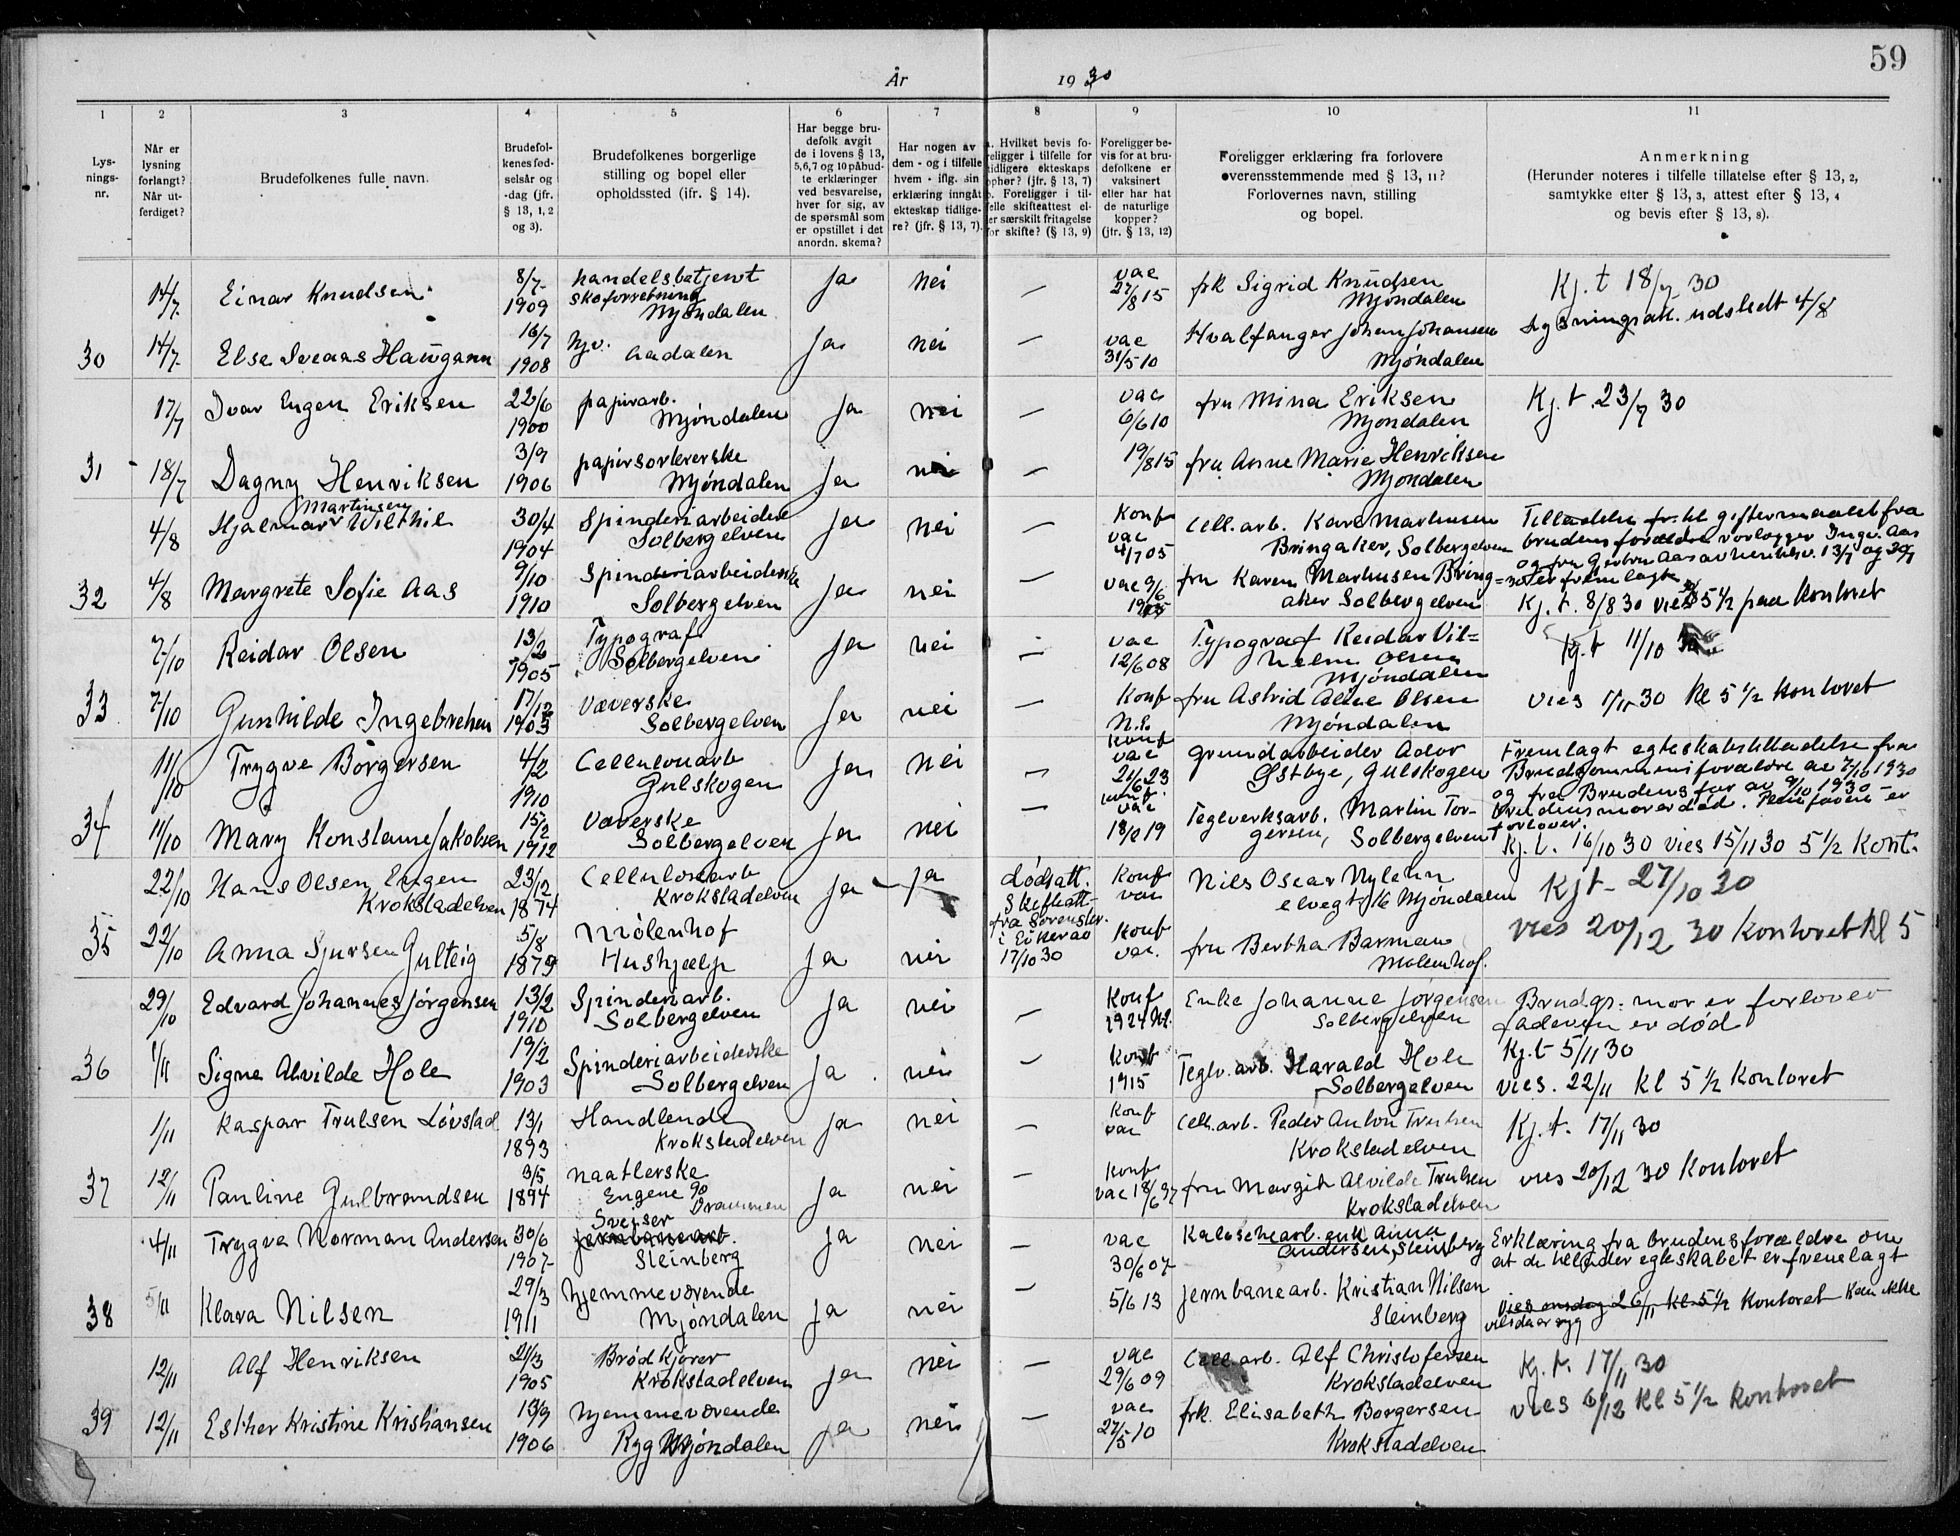 59
År 1930
1 2 3 4 5 6 7 8 9 10 11
Lys-
nings-
nr.
Når er
lysning
forlangt?
Når ut-
ferdiget?
Brudefolkenes fulle navn.
Brudefol-
kenes fød-
selsår og
-dag (jfr.
§ 13, 1, 2
og 3).
Brudefolkenes borgerlige
stilling og bopel eller
opholdssted (ifr. § 14).
Har begge bru-
defolk avgit
de i lovens § 13,
5,6,7 og 10 påbud-
te erklæringer
ved besvarelse,
hver for sig, av
de spørsmål som
er opstillet i det
anordn. skema?
Har nogen av
dem - og i tilfelle
hvem - iflg. sin
erklæring inngått
ekteskap tidlige-
re? (jfr. § 13, 7).
a. Hvilket bevis fo-
religger i tilfelle for
tidligere ekteskaps
ophør? (jfr. § 13, 7)
b. Foreligger i til-
felle skifteattest el-
er særskilt fritagelse
for skifte? (§ 13, 9)
Foreligger be-
vis for at bru-
defolkene er
vaksinert
eller har hat
de naturlige
kopper?
(jfr. § 13, 12)
Foreligger erklæring fra forlovere
overensstemmende med § 13, 11?
Forlovernes navn, stilling
og bopel.
Anmerkning
(Herunder noteres i tilfelle tillatelse efter § 13, 2,
samtykke efter § 13, 3, attest efter § 13, 4
og bevis efter § 13, 8).
14/7 Einar Knudsen 8/7 1909 handelsbetjent skoforretning Mjøndalen Ja nei — vac 27/8 15 frk Sigrid Knudsen Mjøndalen Kj.t 18/7 30
Lysningsatt. udstedt 4/8
30 14/7 Else Sveaas Haugann 16/7 1908 hjv. Aadalen Ja nei — vac 31/5 10 Hvalfanger Johan Johansen Mjøndalen
17/7 Ivar Eugen Eriksen 22/6 1900 papirarb. Mjøndalen Ja nei — vac 6/6 10 fru Mina Eriksen Mjøndalen Kj.t. 23/7 30
31 18/7 Dagny Henriksen 3/9 1906 papirsortererske Mjøndalen Ja nei — 19/8 15 fru Anne Marie Henriksen Mjøndalen
4/8 Hjalmar Martinsen Wilthil 30/4 1904 Spinderiarbeider Solbergelven Ja nei — Konf vac 4/7 05 Cell.arb. Kare Marhusen Bringaker, Solbergelven
Tilladelse til giftermaalet fra
brudens forældre vorlegger Ingv. Aas
32 4/8 Margrete Sofie Aas 9/10 1910 Spinderiarbeiderske Solbergelven Ja nei — vac 9/6 fru Karen Marhusen Bring=
aker Solbergelven
er fremlagte
Kj.t. 8/8 30 vies 5 1/2 paa Kontoret
7/10 Reidar Olsen 13/2 1905 Typograf Solbergelven Ja nei — vac 12/6 08 Typograf Reidar Vil=
helm Olsen Mjøndalen Kj.t 11/10
33 7/10 Gunhilde Ingebretsen 17/12 1903 Væverske Solbergelven Ja nei — Konf N.L. fru Astrid Olsen Mjøndalen vies 30 kl 5 1/2 Kontoret
11/10 Trygve Børgersen 4/2 1910 Cellulosearb Gulskogen Ja nei — Konf vac 21/6 23 Grundarbeider Ador Østbye, Gulskogen
Fremlagt egteskabstilladelse fra
Brudgommens forældre av 7/10 1930
og fra Brudens far av 9/10 1930
34 11/10 Mary Konstanse Jakobsen 15/2 1912 Væverske Solbergelven Ja nei — konf. vac 18/2 19 Teglverksarb. Martin Tor-
gersen, Solbergelven
brudens mor er død. er
forlover.
Kj.t. 16/10 30 vies 15/11 30 5 1/2 Kont.
22/10 Hans Olsen Engen Krokstadelven 23/12 1874 Cellulosearb Krokstadelven Ja — ja dødsatt.
Skifteatt-
fra Sorenskr.
i Eiker av
17/10 30
Konf vac Nils Oscar Nylenn Mjøndalen Kjt- 27/10 30
vies 20/12 30 Kontoret Kl 5
35 22/10 Anna Sjursen Gulteig 5/8 1879 Mølenhof Hushjælp Ja nei Konf vac. fru Bertha Barman Molenhof.
29/10 Edvard Johannes Jørgensen 13/2 1910 Spinderiarb. Solbergelven Ja nei — Konf 1924 Enke Johanne Jørgensen Solbergelven
Brudgr. mor er forlover
faderen er død
36 1/11 Signe Alvilde Hole 19/2 1903 Spinderiarbeiderske Solbergelven Ja nei — Konf 1915 Teglv.arb. Harald Hole Solbergelven
Kj.t 5/11 30
vies. 22/11 kl 5 1/2 Kontoret
1/11 Kaspar Trulsen Løvstad 13/1 1893 Handlende Krokstadelven Ja nei — Konf vac Cell.arb. Peder Anton Trulsen Krokstadelven Kj.t. 17/11 30
37 12/11 Pauline Gulbrandsen 3/5 1894 naatlerske Engene 90 Drammen Ja nei — Konf vac 18/6 37 fru Margit Alvilde Trulsen Krokstadelven vies 20/12 30 Kontoret
4/11 Trygve Norman Andersen 30/6 1907 Sveiser jernbanearb. Steinberg Ja nei — vac 30/6 07 Kalosjearb. enk Anna Andersen, Steinberg
Erklæring fra brudens forældre om
at de tillader egteskabet er fremlagt
38 5/11 Klara Nilsen 29/3 1911 hjemmeværende Mjøndalen Ja nei — 5/6 13 jernbanearb. Kristian Nilsen Steinberg
vies onsdag 26/11 kl 5 1/2 Kontoret Kan ikke
12/11 Alf Henriksen 21/3 1905 Brødkjører Krokstadelven Ja nei — vac 29/6 09 Cell.arb. Alf Christofersen Krokstadelven Kj.t. 17/11 30
39 12/11 Esther Kristine Kristiansen 13/9 1906 hjemmeværende Ryg Mjøndalen Ja nei — vac 27/5 10 frk. Elisabeth Borgersen Krokstadelven vies 6/12 Kl 5 1/2 Kontoret